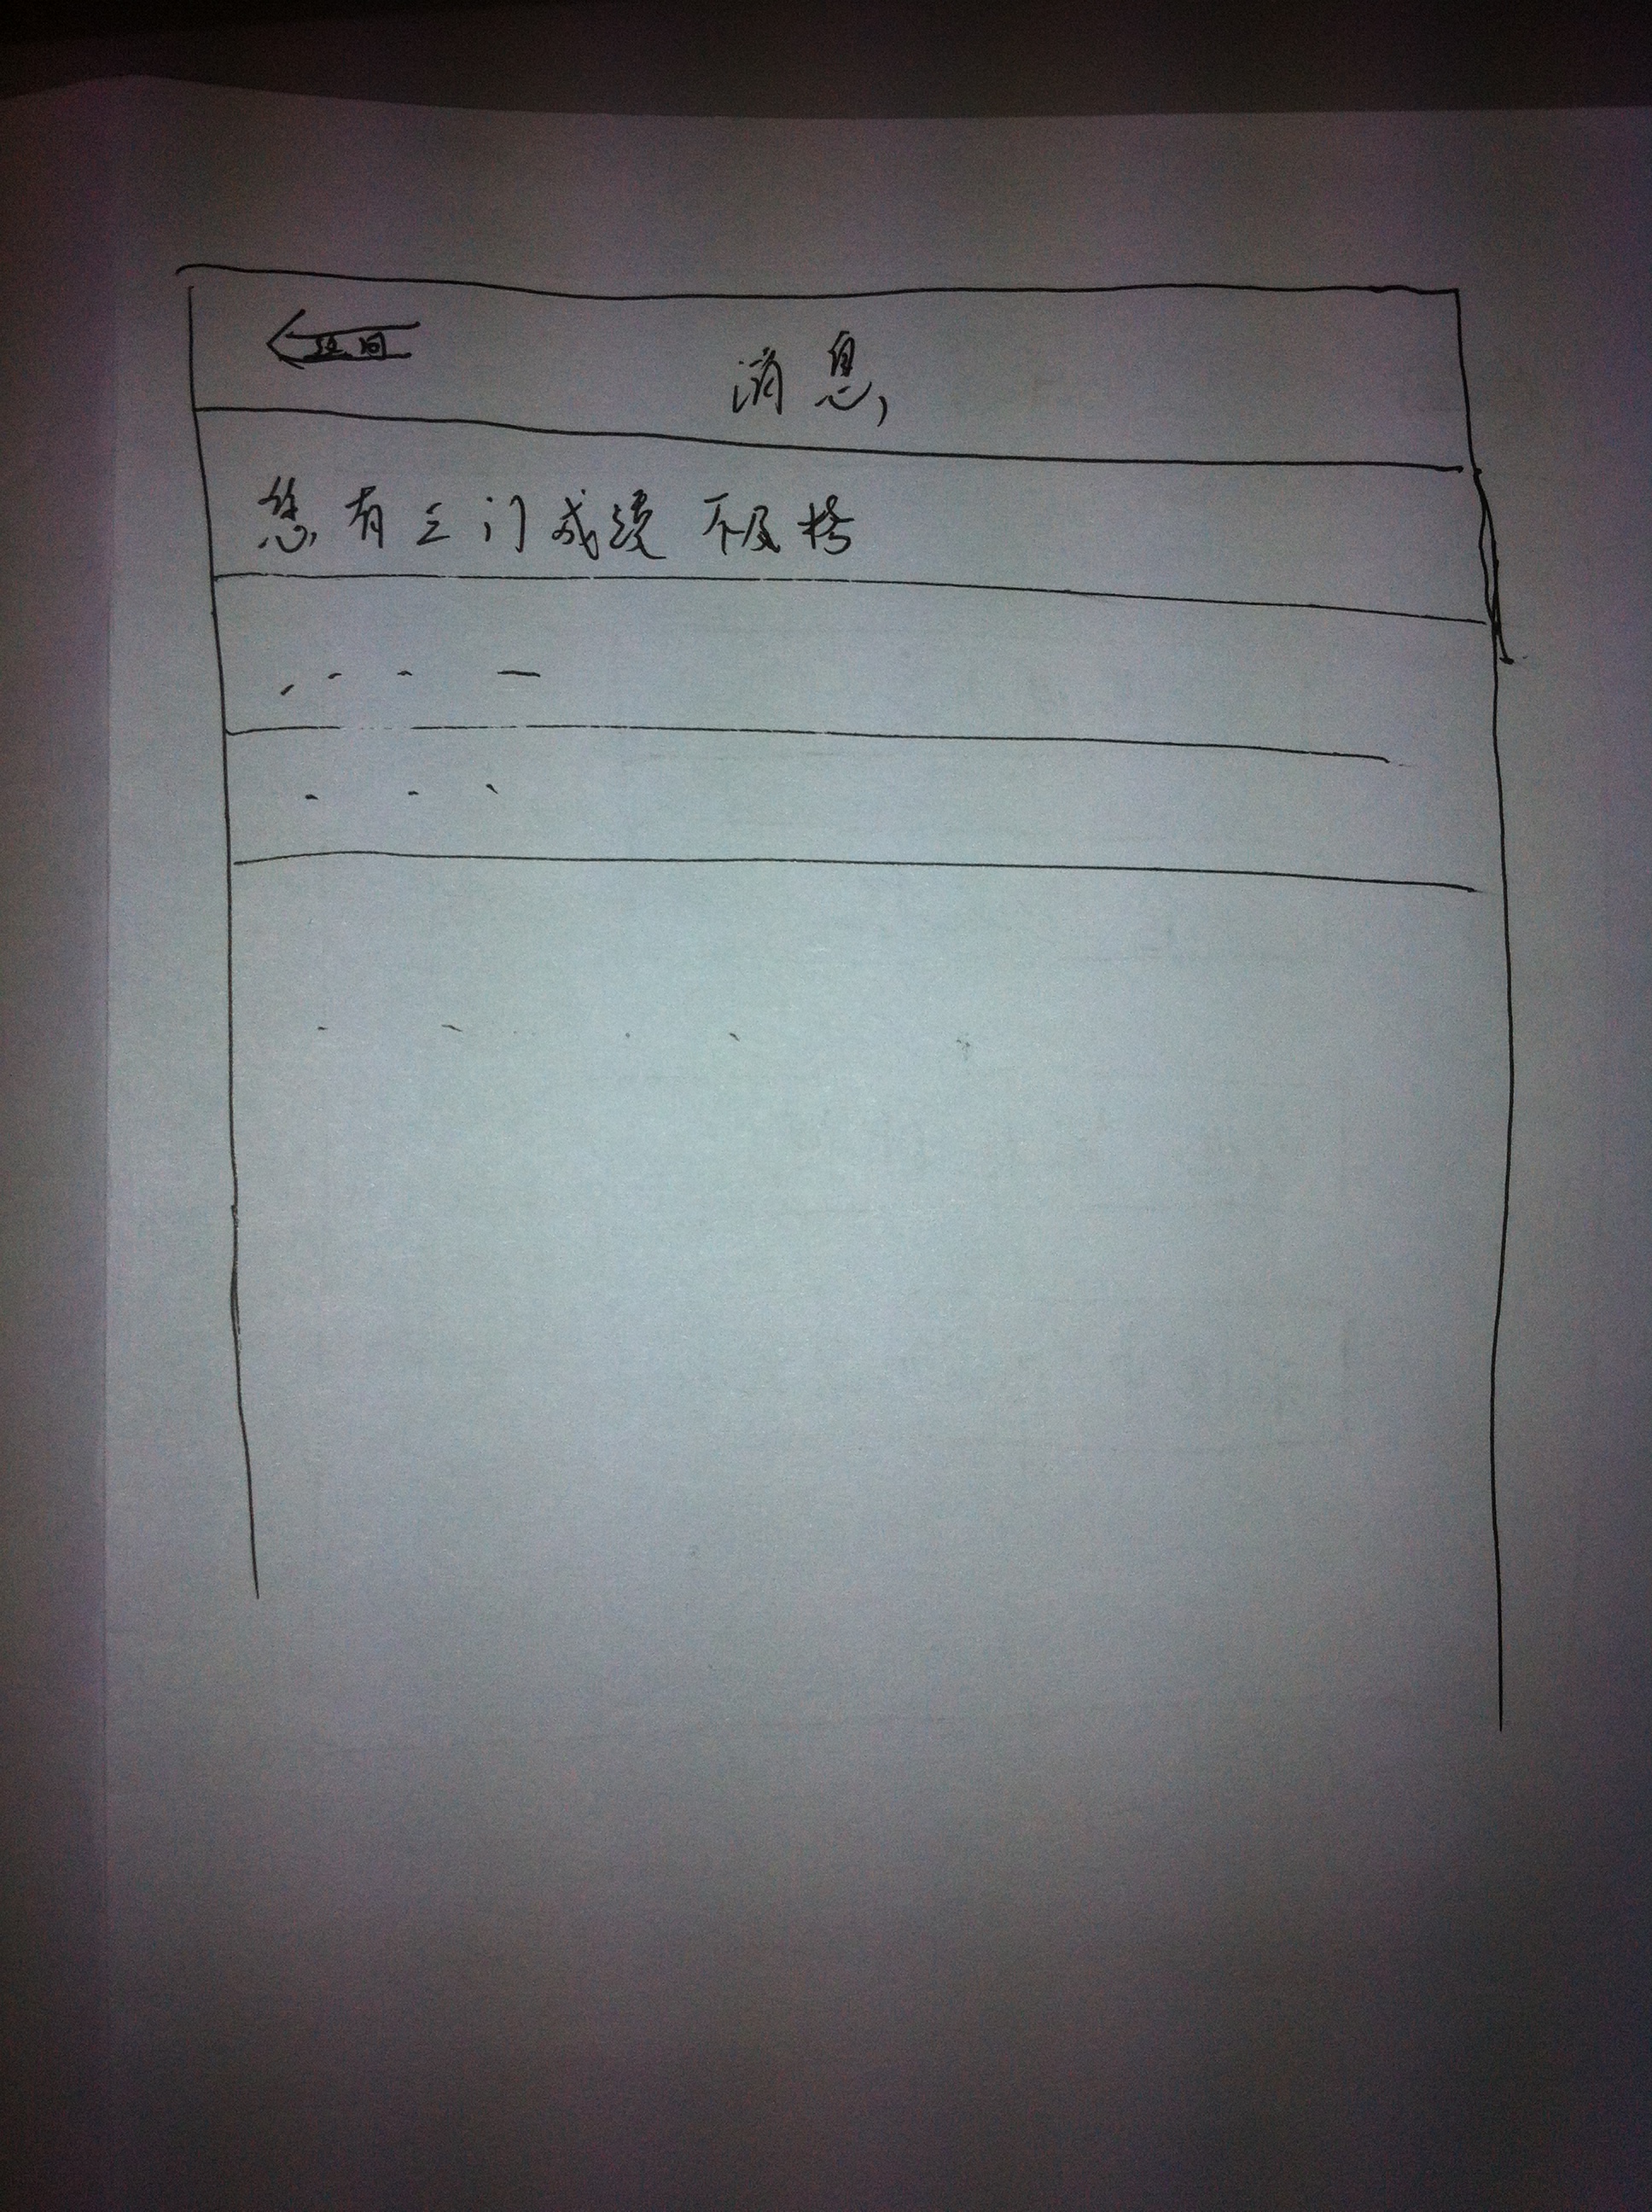 返回
消息
您有三门成绩不及格